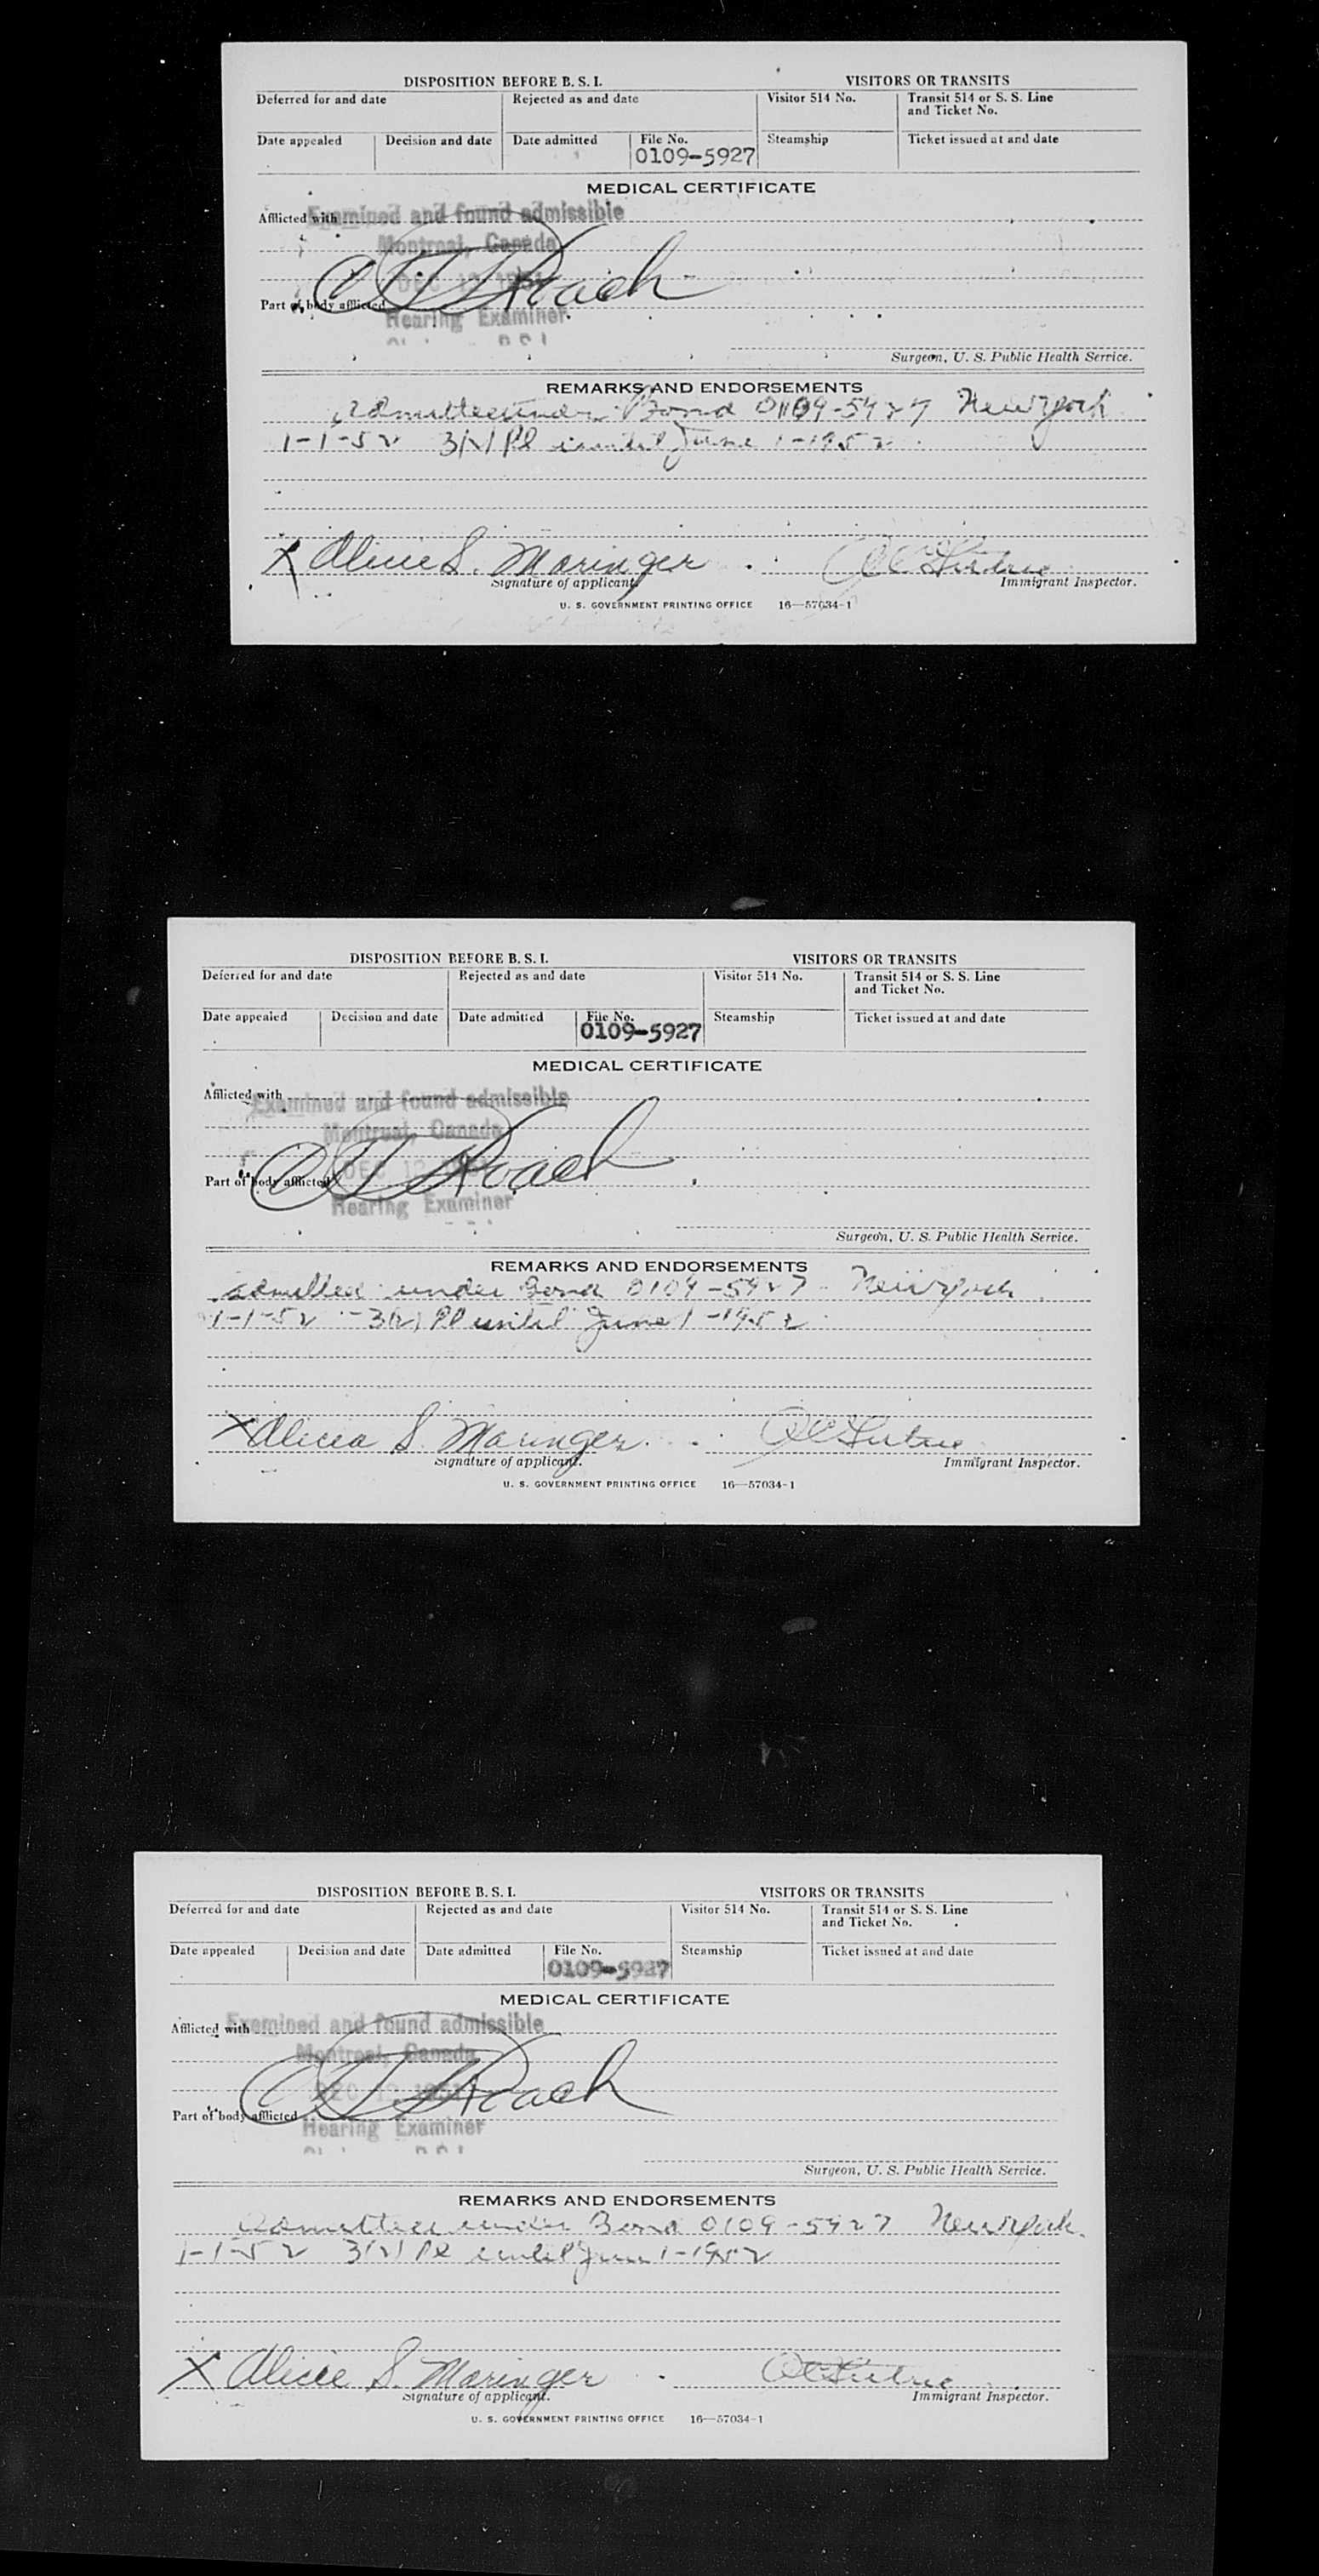 DISPOSITION BEFORE B. S. I.
VISITORS OR TRANSITS
Deferred for and date
Rejected as and date
Visitor 514 No.
Transit 514 or S. S. Line
and Ticket No.
Date appealed
Decision and date
Date admitted
File No.
0109-5927
Steamship
Ticket issued at and date
MEDICAL CERTIFICATE
Afflicted with
Examined and found admissible
Montreal, Canada
DEC 12 1951
Roach
Part of body afflicted
Hearing Examiner
Surgeon, U. S. Public Health Service.
REMARKS AND ENDORSEMENTS
admitted under Bond 0109-5927 New York
1-1-52 3(2) Pl until June 1-1952
X Alicia S. Maringer
Signature of applicant.
Immigrant Inspector.
U. S. GOVERNMENT PRINTING OFFICE 16—57034-1
DISPOSITION BEFORE B. S. I.
VISITORS OR TRANSITS
Deferred for and date
Rejected as and date
Visitor 514 No.
Transit 514 or S. S. Line
and Ticket No.
Date appealed
Decision and date
Date admitted
File No.
0109-5927
Steamship
Ticket issued at and date
MEDICAL CERTIFICATE
Afflicted with
Examined and found admissible
Montreal, Canada
DEC 12
Roach
Part of body afflicted
Hearing Examiner
Surgeon, U. S. Public Health Service.
REMARKS AND ENDORSEMENTS
admitted under Bond 0109-5927 New York
1-1-52 - 3(2) Pl until June 1-1952
X Alicia S. Maringer
Signature of applicant.
Immigrant Inspector.
U. S. GOVERNMENT PRINTING OFFICE 16—57034-1
DISPOSITION BEFORE B. S. I.
VISITORS OR TRANSITS
Deferred for and date
Rejected as and date
Visitor 514 No.
Transit 514 or S. S. Line
and Ticket No.
Date appealed
Decision and date
Date admitted
File No.
0109-5927
Steamship
Ticket issued at and date
MEDICAL CERTIFICATE
Afflicted with
Examined and found admissible
Montreal, Canada
DEC 12 1951
Roach
Part of body afflicted
Hearing Examiner
Surgeon, U. S. Public Health Service.
REMARKS AND ENDORSEMENTS
admitted under Bond 0109-5927 New York
1-1-52 3(2) Pl until June 1-1952
X Alicia S. Maringer
Signature of applicant.
Immigrant Inspector.
U. S. GOVERNMENT PRINTING OFFICE 16—57034-1